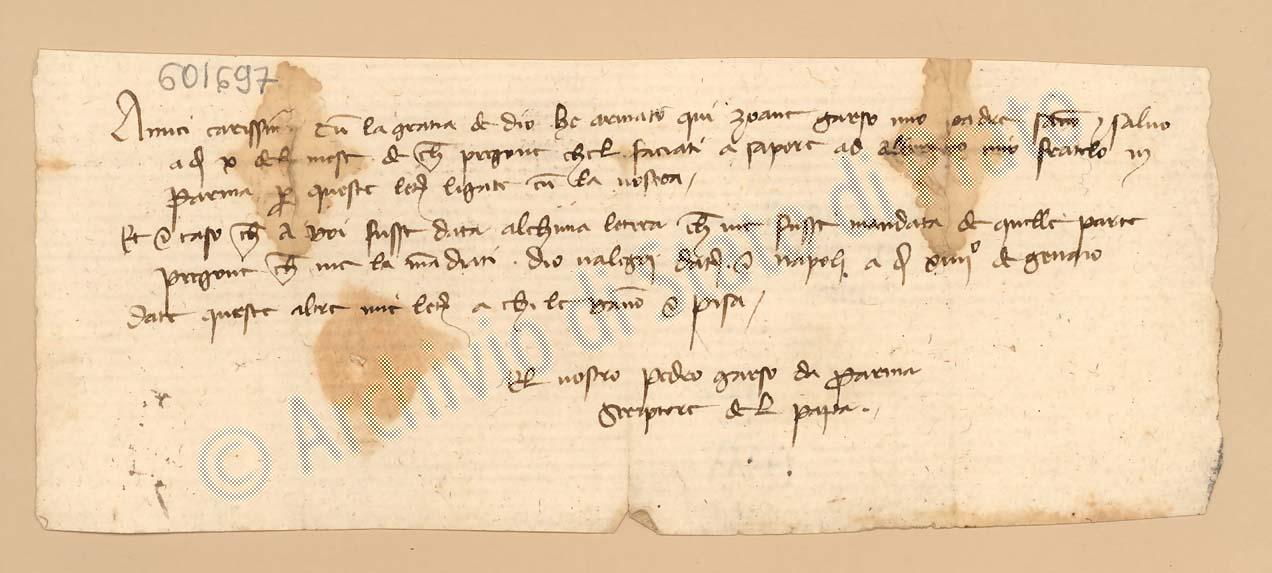 601697
Amici carissimi cũ la gratia de dio he arivato qui zoane garso mio padre sano e salvo
a dì x del mese de ch̃ pregove chel faciati a sapere ad mio fratelo in
Parma p queste letr̃ ligate cũ la vostra /
Et ĩ caso ch̃ a voi fusse data alchuna letera ch̃ me fusse mandata de quelle parte
pregove ch̃ me la mãdiati . dio valegri dat̃ ĩ napoli a dì xiiii° de genaio
date queste altre mie letr̃ a chi le vãno ĩ pisa /
El vostro pedro garso da parma
Scriptore del papa .
© Archivio di Stato di Prato